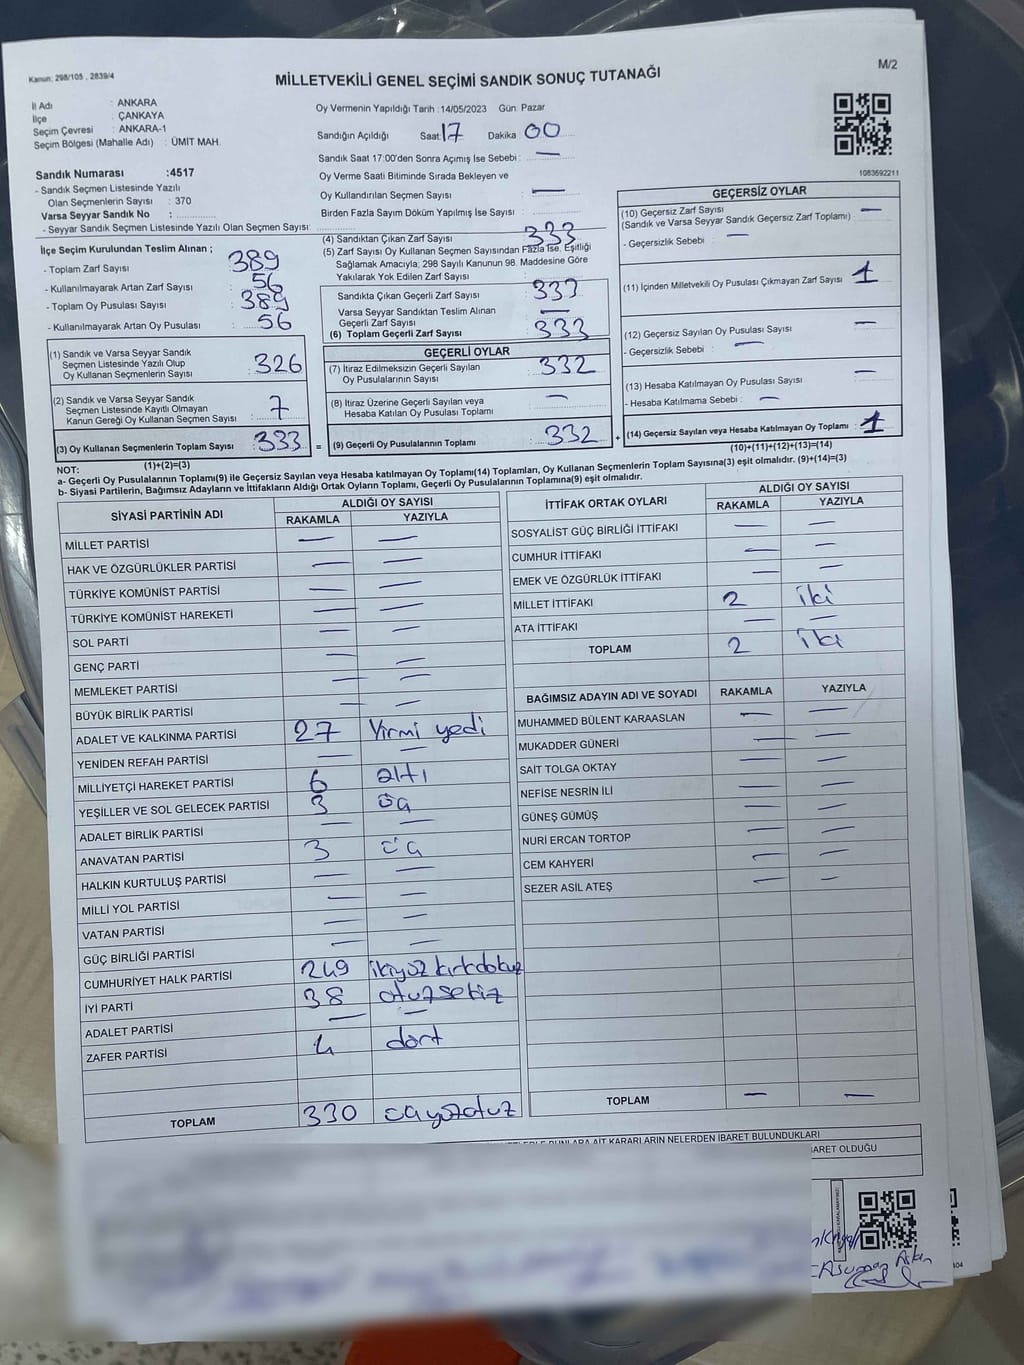 Kanun: 298/105 , 2839/4
MİLLETVEKİLİ GENEL SEÇİMİ SANDIK SONUÇ TUTANAĞI
M/2
İl Adı : ANKARA
İlçe : ÇANKAYA
Seçim Çevresi : ANKARA-1
Seçim Bölgesi (Mahalle Adı) : ÜMİT MAH.
Sandık Numarası :4517
- Sandık Seçmen Listesinde Yazılı
Olan Seçmenlerin Sayısı : 370
Varsa Seyyar Sandık No :
- Seyyar Sandık Seçmen Listesinde Yazılı Olan Seçmen Sayısı:
Oy Vermenin Yapıldığı Tarih :14/05/2023 Gün: Pazar
Sandığın Açıldığı Saat: 17 Dakika: 00
Sandık Saat 17:00'den Sonra Açımış İse Sebebi : —
Oy Verme Saati Bitiminde Sırada Bekleyen ve
Oy Kullandırılan Seçmen Sayısı : —
Birden Fazla Sayım Döküm Yapılmış İse Sayısı :
1083692211
İlçe Seçim Kurulundan Teslim Alınan ;
- Toplam Zarf Sayısı : 389
- Kullanılmayarak Artan Zarf Sayısı : 56
- Toplam Oy Pusulası Sayısı : 389
- Kullanılmayarak Artan Oy Pusulası : 56
(1) Sandık ve Varsa Seyyar Sandık
Seçmen Listesinde Yazılı Olup
Oy Kullanan Seçmenlerin Sayısı : 326
(2) Sandık ve Varsa Seyyar Sandık
Seçmen Listesinde Kayıtlı Olmayan
Kanun Gereği Oy Kullanan Seçmen Sayısı : 7
(3) Oy Kullanan Seçmenlerin Toplam Sayısı : 333 =
(1)+(2)=(3)
(4) Sandıktan Çıkan Zarf Sayısı : 333
(5) Zarf Sayısı Oy Kullanan Seçmen Sayısından Fazla İse, Eşitliği
Sağlamak Amacıyla, 298 Sayılı Kanunun 98. Maddesine Göre
Yakılarak Yok Edilen Zarf Sayısı :
Sandıkta Çıkan Geçerli Zarf Sayısı : 333
Varsa Seyyar Sandıktan Teslim Alınan
Geçerli Zarf Sayısı : —
(6) Toplam Geçerli Zarf Sayısı : 333
GEÇERLİ OYLAR
(7) İtiraz Edilmeksizin Geçerli Sayılan
Oy Pusulalarının Sayısı : 332
(8) İtiraz Üzerine Geçerli Sayılan veya
Hesaba Katılan Oy Pusulası Toplamı : —
(9) Geçerli Oy Pusulalarının Toplamı : 332 +
GEÇERSİZ OYLAR
(10) Geçersiz Zarf Sayısı : —
(Sandık ve Varsa Seyyar Sandık Geçersiz Zarf Toplamı)
- Geçersizlik Sebebi : —
(11) İçinden Milletvekili Oy Pusulası Çıkmayan Zarf Sayısı : 1
(12) Geçersiz Sayılan Oy Pusulası Sayısı : —
- Geçersizlik Sebebi : —
(13) Hesaba Katılmayan Oy Pusulası Sayısı : —
- Hesaba Katılmama Sebebi : —
(14) Geçersiz Sayılan veya Hesaba Katılmayan Oy Toplamı : 1
(10)+(11)+(12)+(13)=(14)
NOT:
a- Geçerli Oy Pusulalarının Toplamı(9) ile Geçersiz Sayılan veya Hesaba katılmayan Oy Toplamı(14) Toplamları, Oy Kullanan Seçmenlerin Toplam Sayısına(3) eşit olmalıdır. (9)+(14)=(3)
b- Siyasi Partilerin, Bağımsız Adayların ve İttifakların Aldığı Ortak Oyların Toplamı, Geçerli Oy Pusulalarının Toplamına(9) eşit olmalıdır.
SİYASİ PARTİNİN ADI ALDIĞI OY SAYISI
RAKAMLA YAZIYLA
MİLLET PARTİSİ — —
HAK VE ÖZGÜRLÜKLER PARTİSİ — —
TÜRKİYE KOMÜNİST PARTİSİ — —
TÜRKİYE KOMÜNİST HAREKETİ — —
SOL PARTİ — —
GENÇ PARTİ — —
MEMLEKET PARTİSİ — —
BÜYÜK BİRLİK PARTİSİ — —
ADALET VE KALKINMA PARTİSİ 27 Yirmi yedi
YENİDEN REFAH PARTİSİ — —
MİLLİYETÇİ HAREKET PARTİSİ 6 altı
YEŞİLLER VE SOL GELECEK PARTİSİ 3 üç
ADALET BİRLİK PARTİSİ — —
ANAVATAN PARTİSİ 3 üç
HALKIN KURTULUŞ PARTİSİ — —
MİLLİ YOL PARTİSİ — —
VATAN PARTİSİ — —
GÜÇ BİRLİĞİ PARTİSİ — —
CUMHURİYET HALK PARTİSİ 249 ikiyüz kırkdokuz
İYİ PARTİ 38 otuzsekiz
ADALET PARTİSİ — —
ZAFER PARTİSİ 4 dört
TOPLAM 330 üçyüzotuz
İTTİFAK ORTAK OYLARI ALDIĞI OY SAYISI
RAKAMLA YAZIYLA
SOSYALİST GÜÇ BİRLİĞİ İTTİFAKI — —
CUMHUR İTTİFAKI — —
EMEK VE ÖZGÜRLÜK İTTİFAKI — —
MİLLET İTTİFAKI 2 iki
ATA İTTİFAKI — —
TOPLAM 2 iki
BAĞIMSIZ ADAYIN ADI VE SOYADI RAKAMLA YAZIYLA
MUHAMMED BÜLENT KARAASLAN — —
MUKADDER GÜNERİ — —
SAİT TOLGA OKTAY — —
NEFİSE NESRİN İLİ — —
GÜNEŞ GÜMÜŞ — —
NURİ ERCAN TORTOP — —
CEM KAHYERİ — —
SEZER ASİL ATEŞ — —
TOPLAM — —
BUNLARA AİT KARARLARIN NELERDEN İBARET BULUNDUKLARI
BARET OLDUĞU